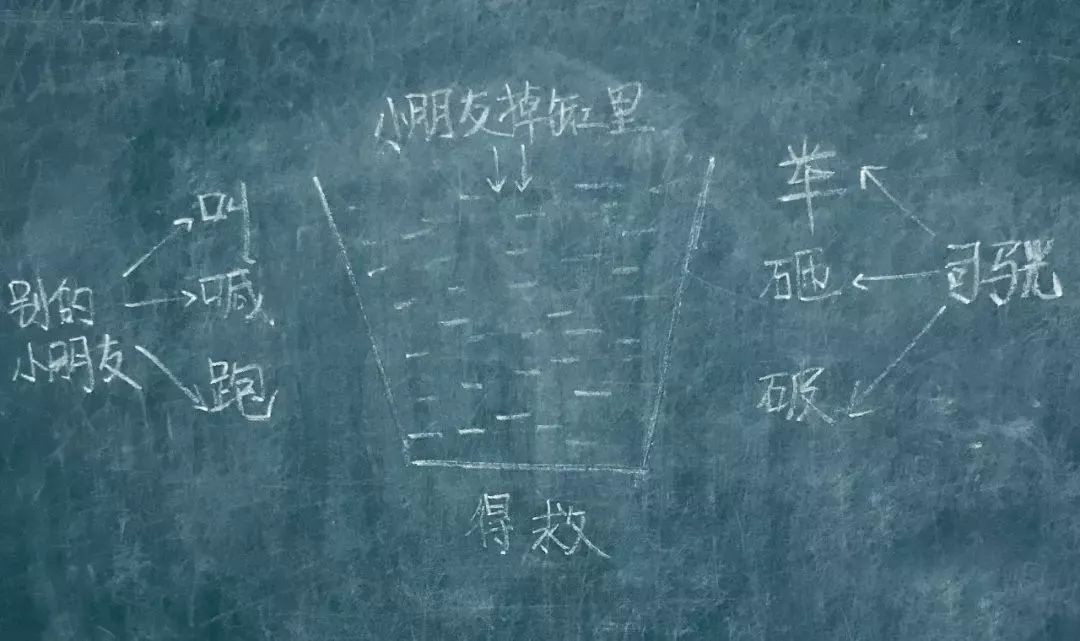 小朋友掉缸里
叫
喊
跑
别的
小朋友
举
砸
破
司马光
得救